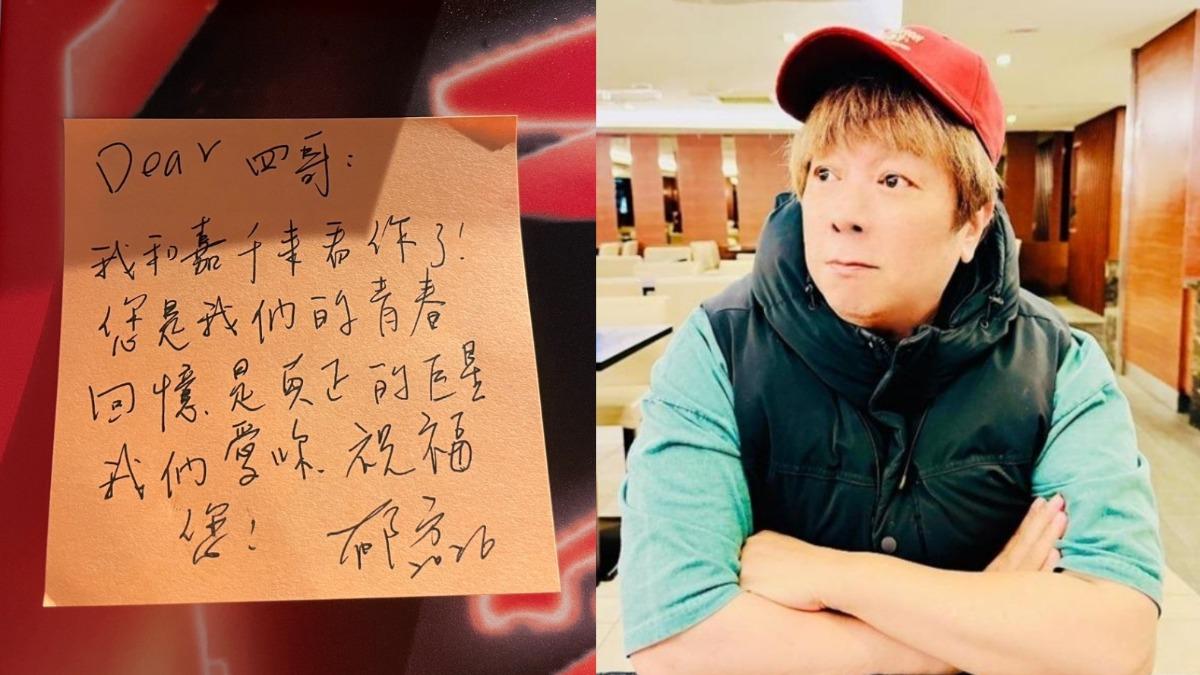 Dear 四哥:
我和嘉千來看你了!
您是我們的青春
回憶是真正的巨星
我們愛你、祝福
您! 郁方
2026